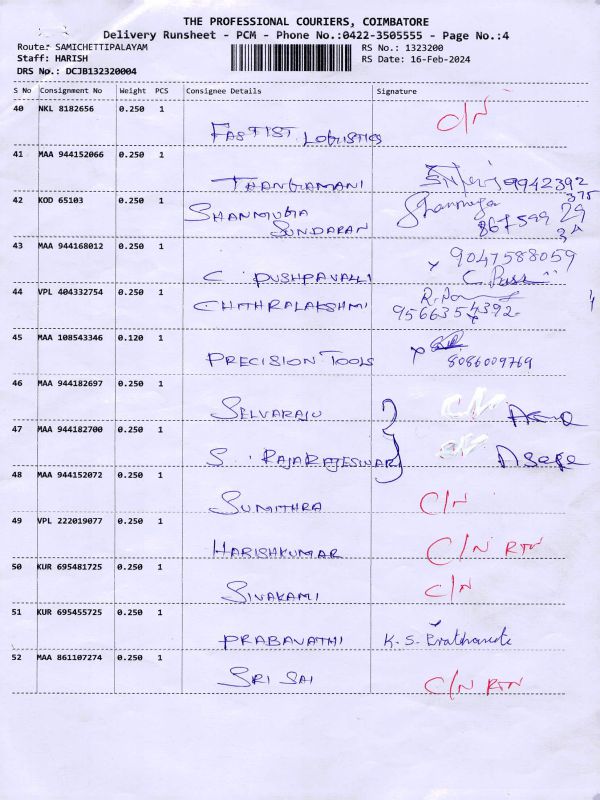 THE PROFESSIONAL COURIERS, COIMBATORE
Delivery Runsheet - PCM - Phone No.:0422-3505555 - Page No.:4
Route: SAMICHETTIPALAYAM
RS No.: 1323200
Staff: HARISH
RS Date: 16-Feb-2024
DRS No.: DCJB132320004
S No Consignment No Weight PCS Consignee Details Signature
40 NKL 8182656 0.250 1
FASTIST LOGISTICS C/N
41 MAA 944152066 0.250 1
THANGAMANI 9942392
375
42 KOD 65103 0.250 1
SHANMUGA
SUNDARAN 867599 29
43 MAA 944168012 0.250 1
9047588059
C. PUSHPAVALLI C. Puss
44 VPL 404332754 0.250 1
CHITHRALAKSHMI 9566354392
45 MAA 108543346 0.120 1
PRECISION TOOLS 8086009769
46 MAA 944182697 0.250 1
SELVARAJU C/N
47 MAA 944182700 0.250 1
S. RAJARAJESWARI C/N
48 MAA 944152072 0.250 1
SUMITHRA C/N
49 VPL 222019077 0.250 1
HARISHKUMAR C/N RTN
50 KUR 695481725 0.250 1
SIVAKAMI C/N
51 KUR 695455725 0.250 1
PRABAVATHI K. S.
52 MAA 861107274 0.250 1
SRI SAI C/N RTN